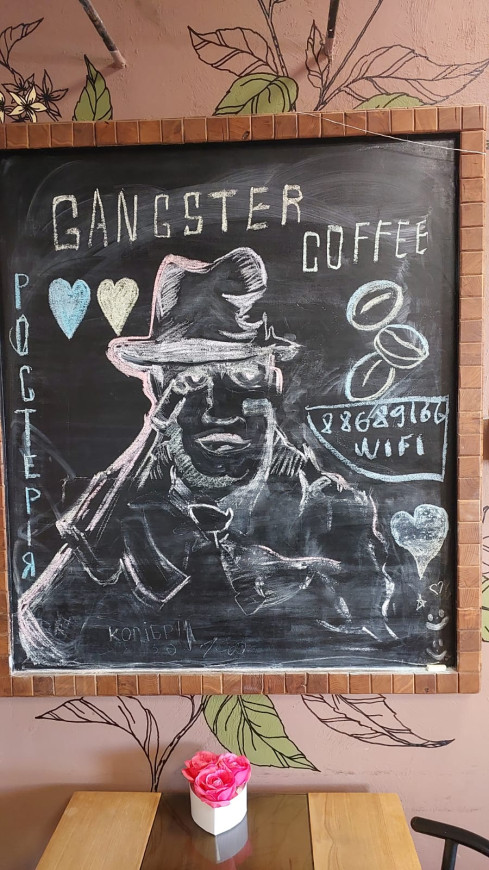 GANGSTER
COFFEE
РОСТЕРІЯ
88689166
WIFI
КОЛІБРІ